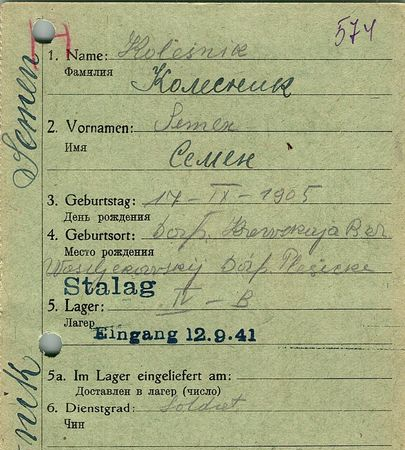 H
574
Semen
1. Name: Kolesnik
Фамилия
Колесник
2. Vornamen: Semen
Имя
Семен
3. Geburtstag: 17-IX-1905
День рождения
4. Geburtsort: Dorf.
Место рождения
Dorf
Stalag
5. Lager: IV-B
Лагер
Eingang 12.9.41
5a. Im Lager eingeliefert am:
Доставлен в лагер (число)
6. Dienstgrad: Soldat
Чин
nik